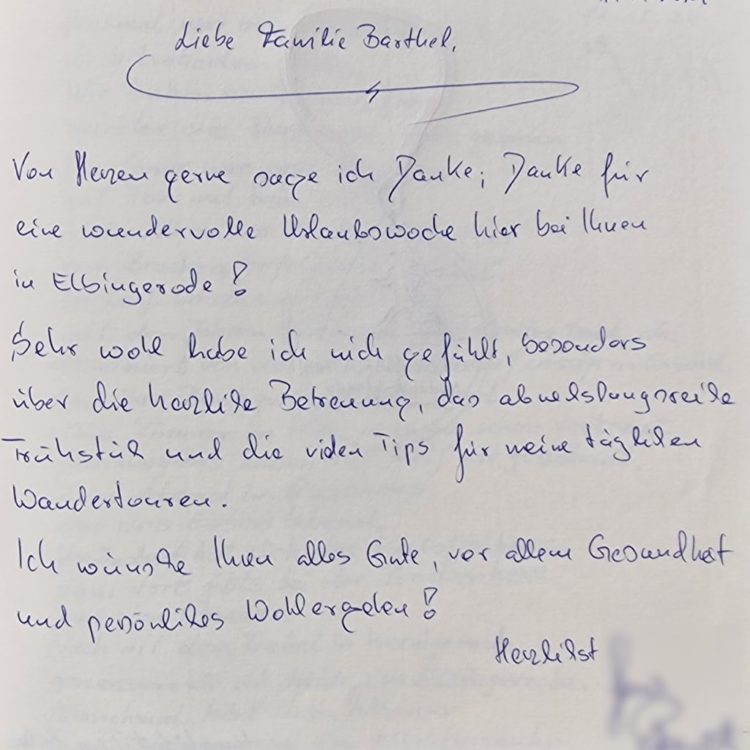 Liebe Familie Barthel,
Von Herzen gerne sage ich Danke; Danke für
eine wundervolle Urlaubswoche hier bei Ihnen
in Elbingerode!
Sehr wohl habe ich mich gefühlt, besonders
über die herzliche Betreuung, das abwechslungsreiche
Frühstück und die vielen Tips für meine täglichen
Wandertouren.
Ich wünsche Ihnen alles Gute, vor allem Gesundheit
und persönliches Wohlergehen!
Herzlichst